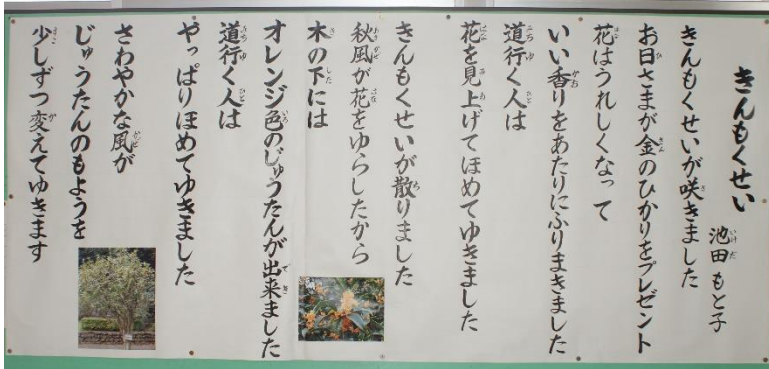 きんもくせい
池田もと子
きんもくせいが咲きました
お日さまが金のひかりをプレゼント
花はうれしくなって
いい香りをあたりにふりまきました
道行く人は
花を見上げてほめてゆきました
きんもくせいが散りました
秋風が花をゆらしたから
木の下には
オレンジ色のじゅうたんが出来ました
道行く人は
やっぱりほめてゆきました
さわやかな風が
じゅうたんのもようを
少しずつ変えてゆきます